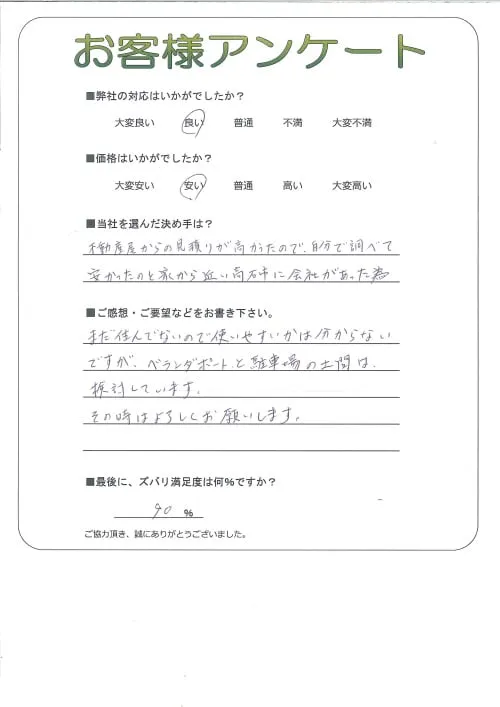 お客様アンケート
■弊社の対応はいかがでしたか？
大変良い 良い 普通 不満 大変不満
■価格はいかがでしたか？
大変安い 安い 普通 高い 大変高い
■当社を選んだ決め手は？
不動産屋からの見積りが高かったので、自分で調べて
安かったのと家から近い高石市に会社があった為
■ご感想・ご要望などをお書き下さい。
まだ住んでないので使いやすいかは分からない
ですが、ベランダポートと駐車場の土間は、
検討しています。
その時はよろしくお願いします。
■最後に、ズバリ満足度は何%ですか？
90 %
ご協力頂き、誠にありがとうございました。